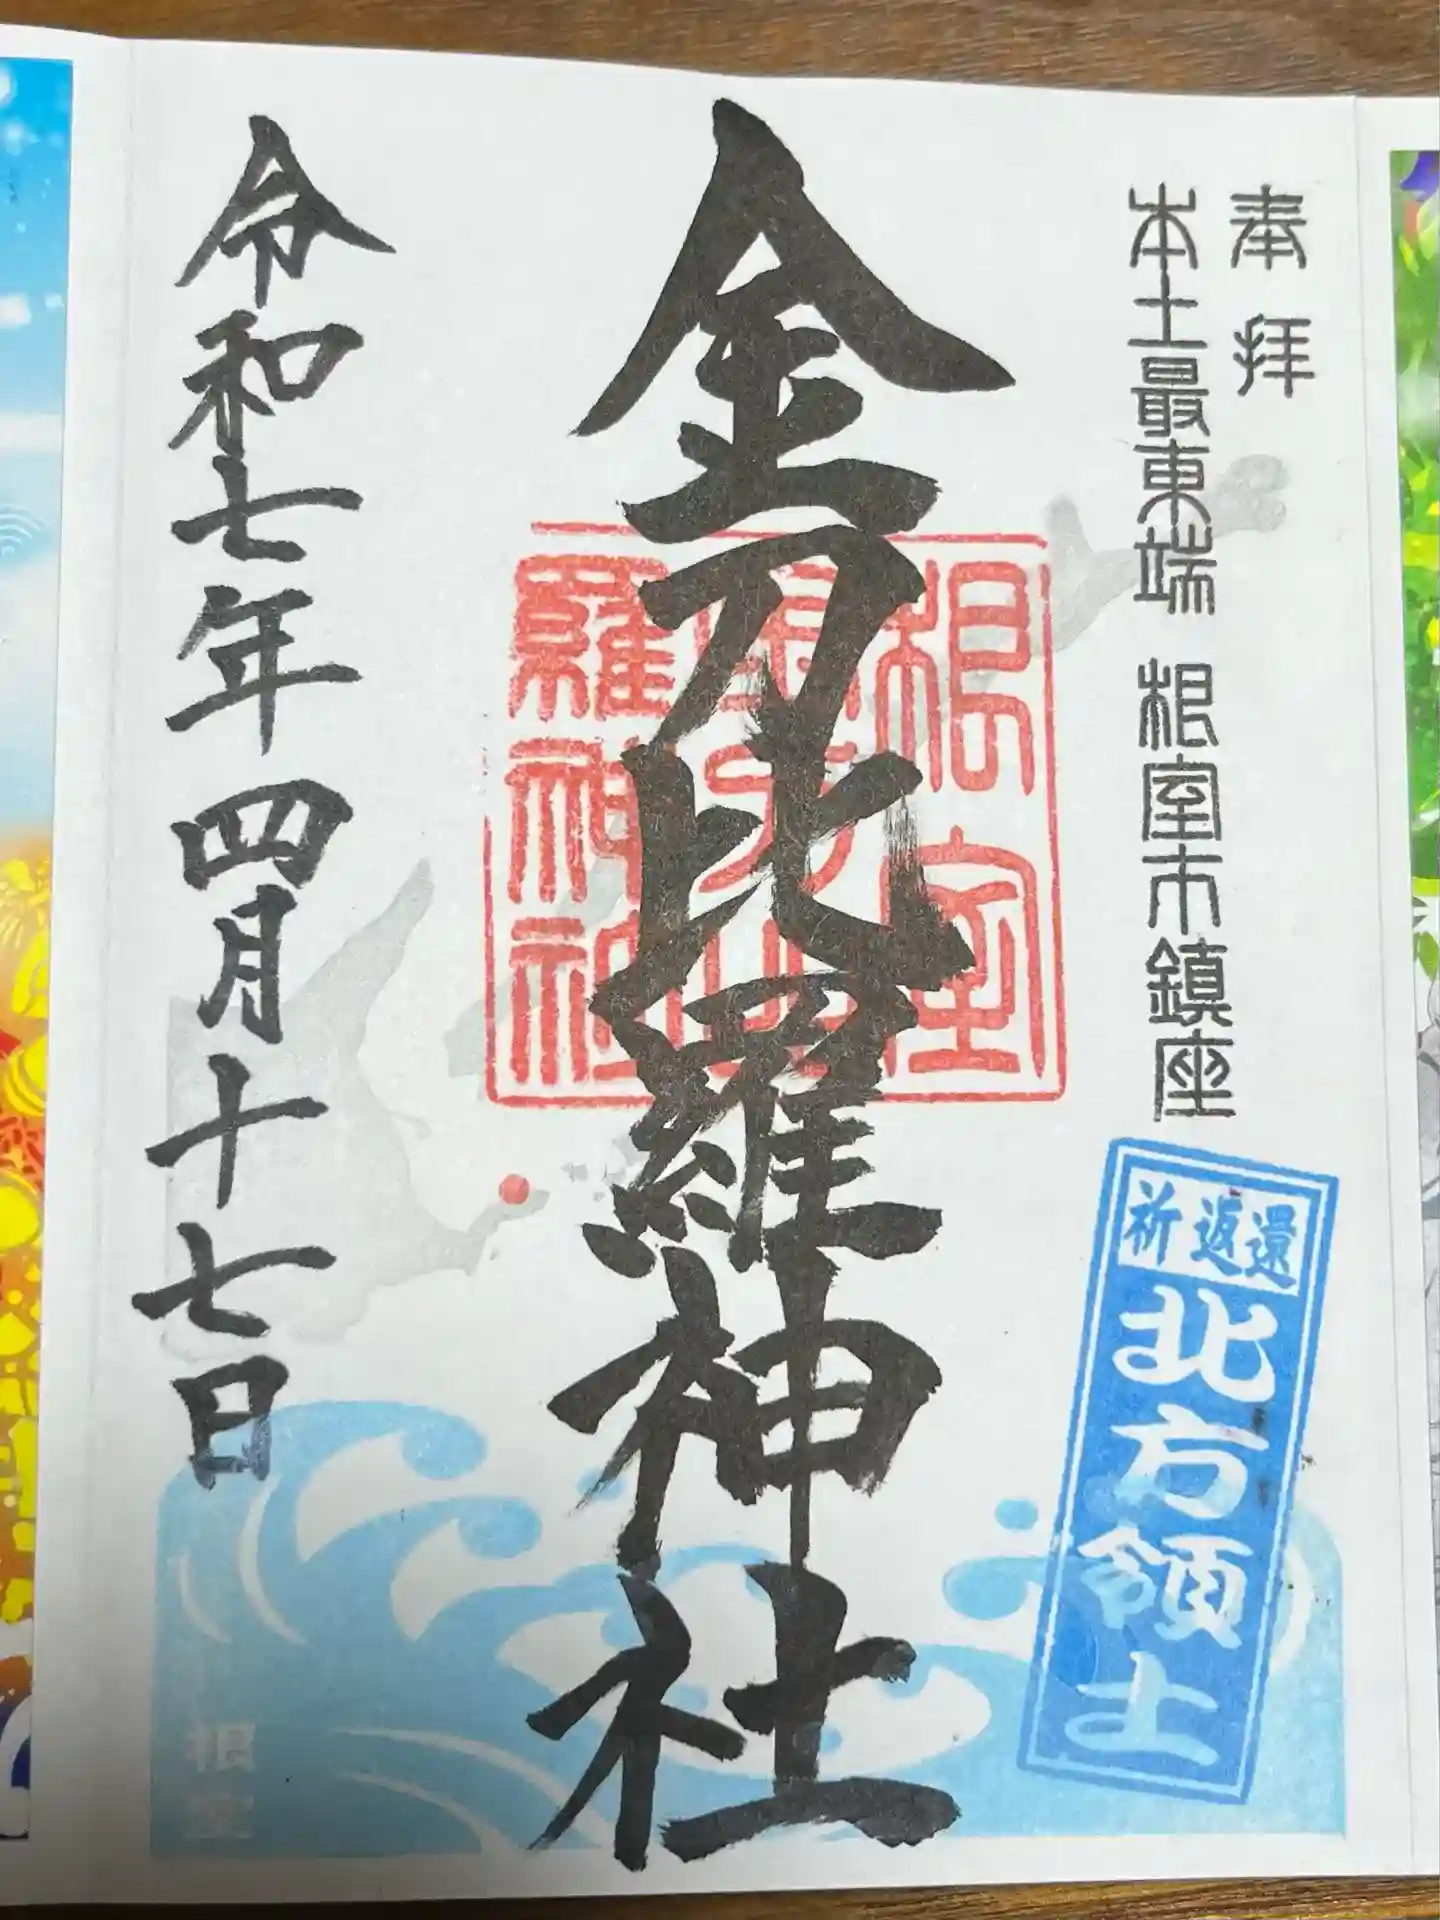 奉拝
本土最東端 根室市鎮座
祈返還
北方領土
金刀比羅神社
根室
羅神社
令和七年四月十七日
根室